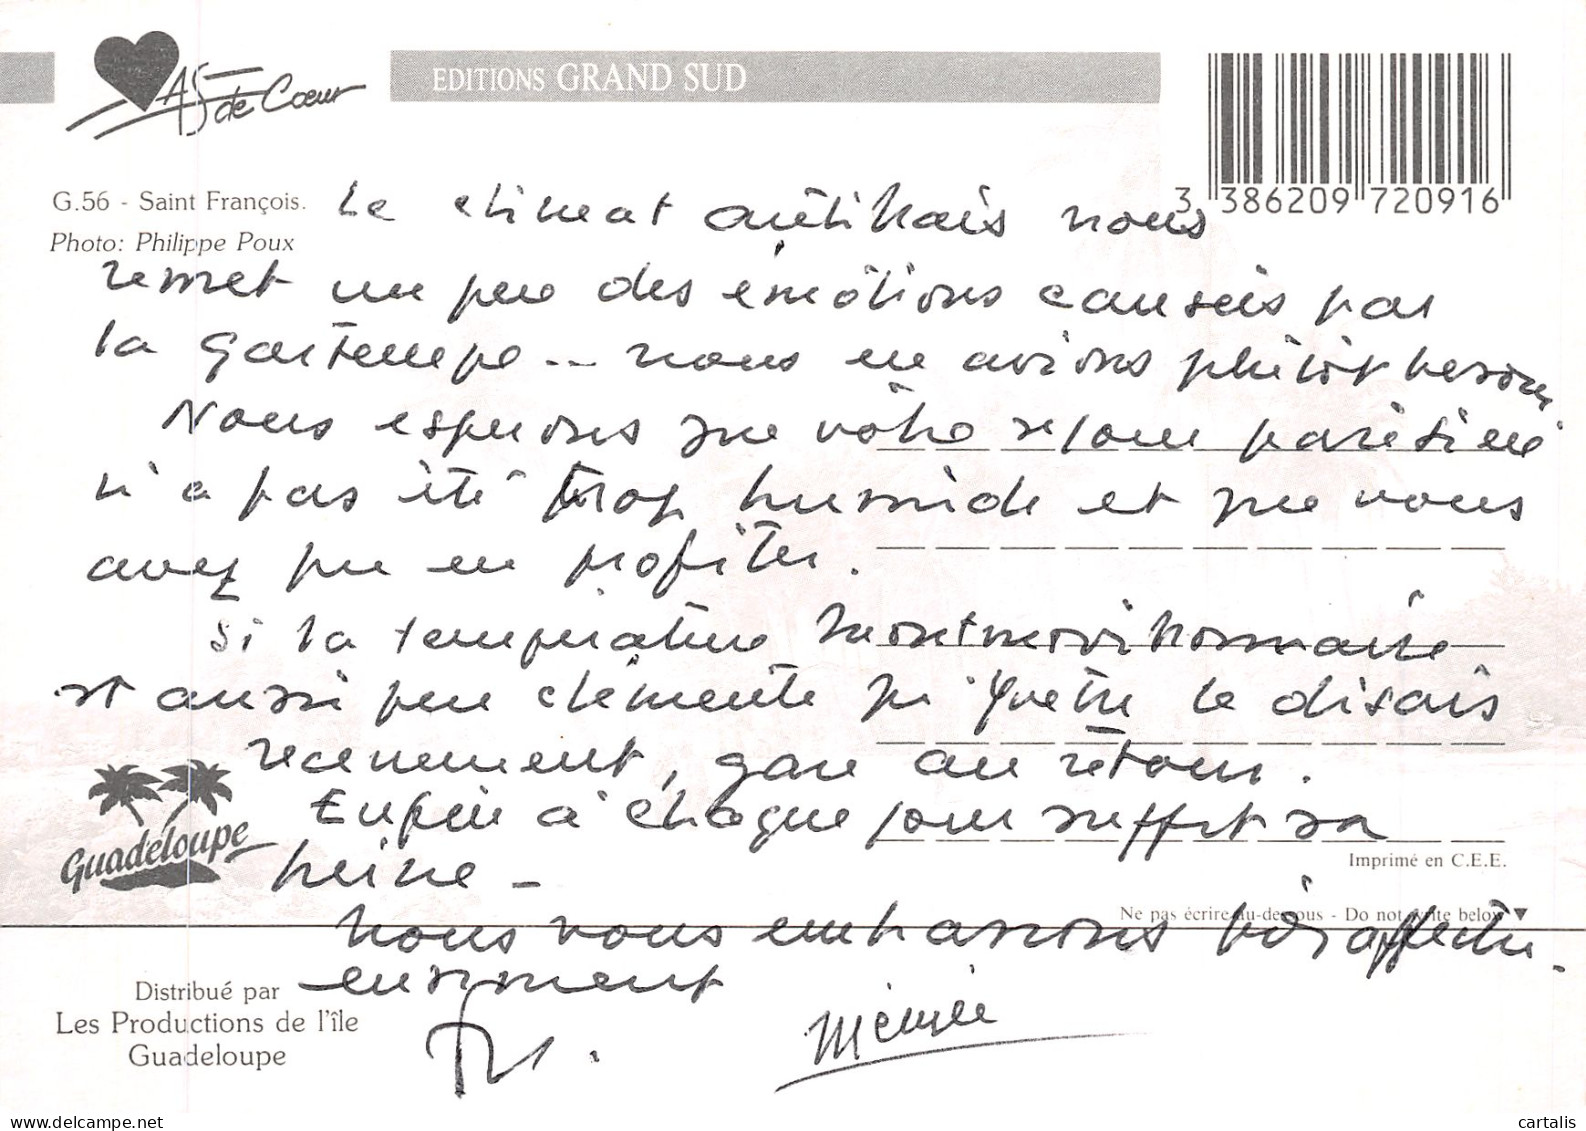 As de Cœur
EDITIONS GRAND SUD
3 386209 720916
G.56 - Saint François.
Photo: Philippe Poux
Le climat antillais nous
remet un peu des émotions causées par
la Gartempe... nous en avions plutôt besoin
Nous espérons que votre séjour parisien
n'a pas été trop humide et que vous
avez pu en profiter.
Si la température montmorillonnaise
est aussi peu clémente qu'Yvette le disais
recemment, gare au retour.
Enfin à chaque jour suffit sa
peine -
Nous vous embrassons très affectu
eusement
Guadeloupe
Imprimé en C.E.E.
Ne pas écrire au-dessous - Do not write below ▼
Distribué par
Les Productions de l'île
Guadeloupe
delcampe.net
cartalis